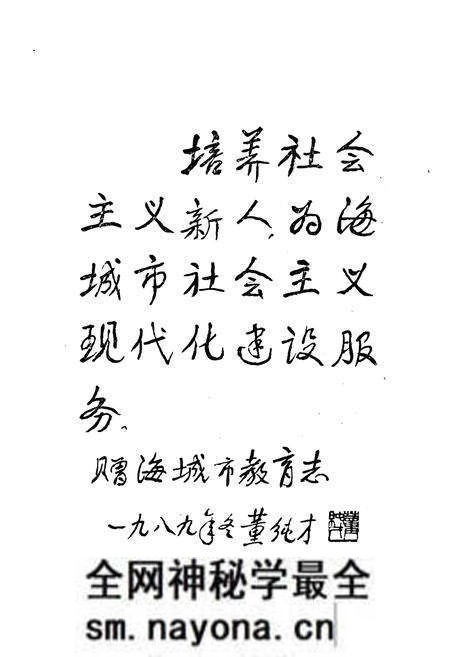 培养社会
主义新人,为海
城市社会主义
现代化建设服
务.
赠海城市教育志
一九八九年冬董纯才
全网神秘学最全
sm.nayona.cn